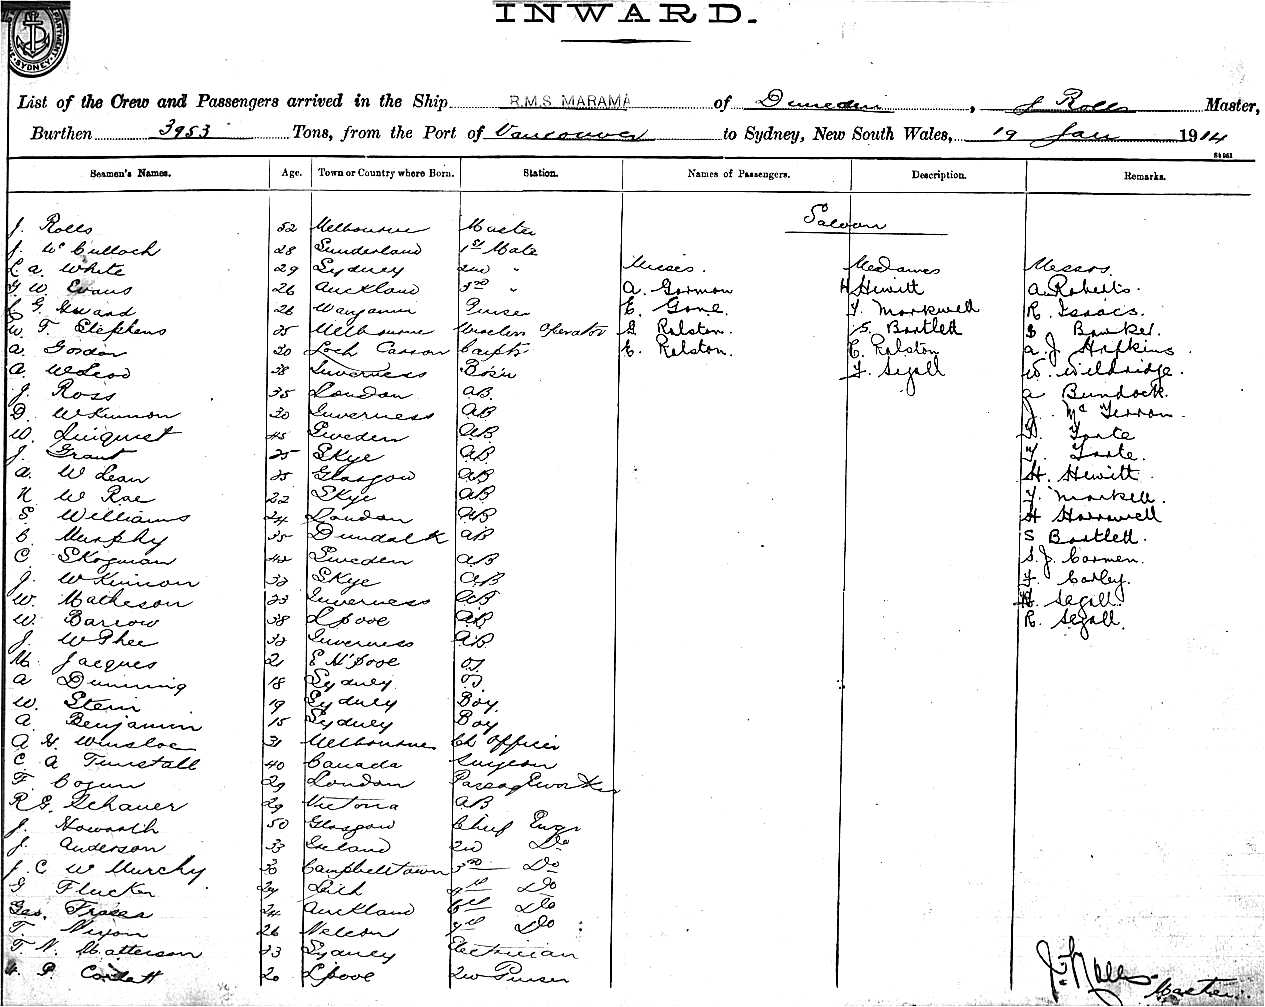 INWARD.
List of the Crew and Passengers arrived in the Ship R.M.S MARAMA of Dunedin, J Rolls Master,
Burthen 3953 Tons, from the Port of Vancouver to Sydney, New South Wales, 19 Jan 1914
Seamen's Names. Age. Town or Country where Born. Station. Names of Passengers. Description. Remarks.
Saloon
J. Rolls 52 Melbourne Master
J. McCulloch 28 Sunderland 1st Mate
C a. White 29 Sydney 2nd " Misses. Mesdames Messrs.
G W. Evans 26 Auckland 3rd " A. Gorman H Hewitt A Roberts.
G. 26 Purser E. Gone. F. Markwell R. Isaacs.
W. F. Stephens 25 Melbourne Wireless Operator G Ralston. S. Bartlett Banker.
A. Gordon 30 Loch Carron Carptr E. Ralston. E. Ralston A. J. Hopkins.
A. McLeod 38 Inverness Bosn F. Segall W. Wildridge.
J. Ross 35 London AB. A Bundock.
D. McKinnon 30 Inverness AB J. Mc Ferron.
W. Linquist 45 Sweden AB Foote
J. Grant 25 Skye AB F. Foote.
A. McLean 25 Glasgow AB H. Hewitt
N McRae 22 Skye AB F. Markell.
S. Williams 24 London AB H
Murphy 35 Dundalk AB S Bartlett.
C Skogman 42 Sweden AB S. J. Carmen.
J. McKinnon 32 Skye AB F. Corley.
W. Matheson 23 Inverness AB H. Segall
W. Barrow 38 Lpool AB R. Segall.
J. McPhee 32 Inverness AB
M. Jacques 21 OS
A Dunning 18 Sydney OS
W. Stein 19 Sydney Boy
A. Benjamin 15 Sydney Boy
A H. Winsloe 31 Melbourne Ch Officer
C A Tunstall 40 Canada Surgeon
F. 29 London Passageworker
R G. Schauer 29 Victoria AB
J. Howorth 50 Glasgow Chief Engr
J. Anderson 33 Ireland 2nd Do
J. C McMurchy 30 Campbelltown 3rd Do
G Flucker 29 Leith 4th Do
Geo. Fraser 24 Auckland 6th Do
T. Nixon 26 Nelson 7th Do
T N. Matterson 23 Sydney Electrician
P. 20 Lpool 2nd Purser
J. Rolls Master.